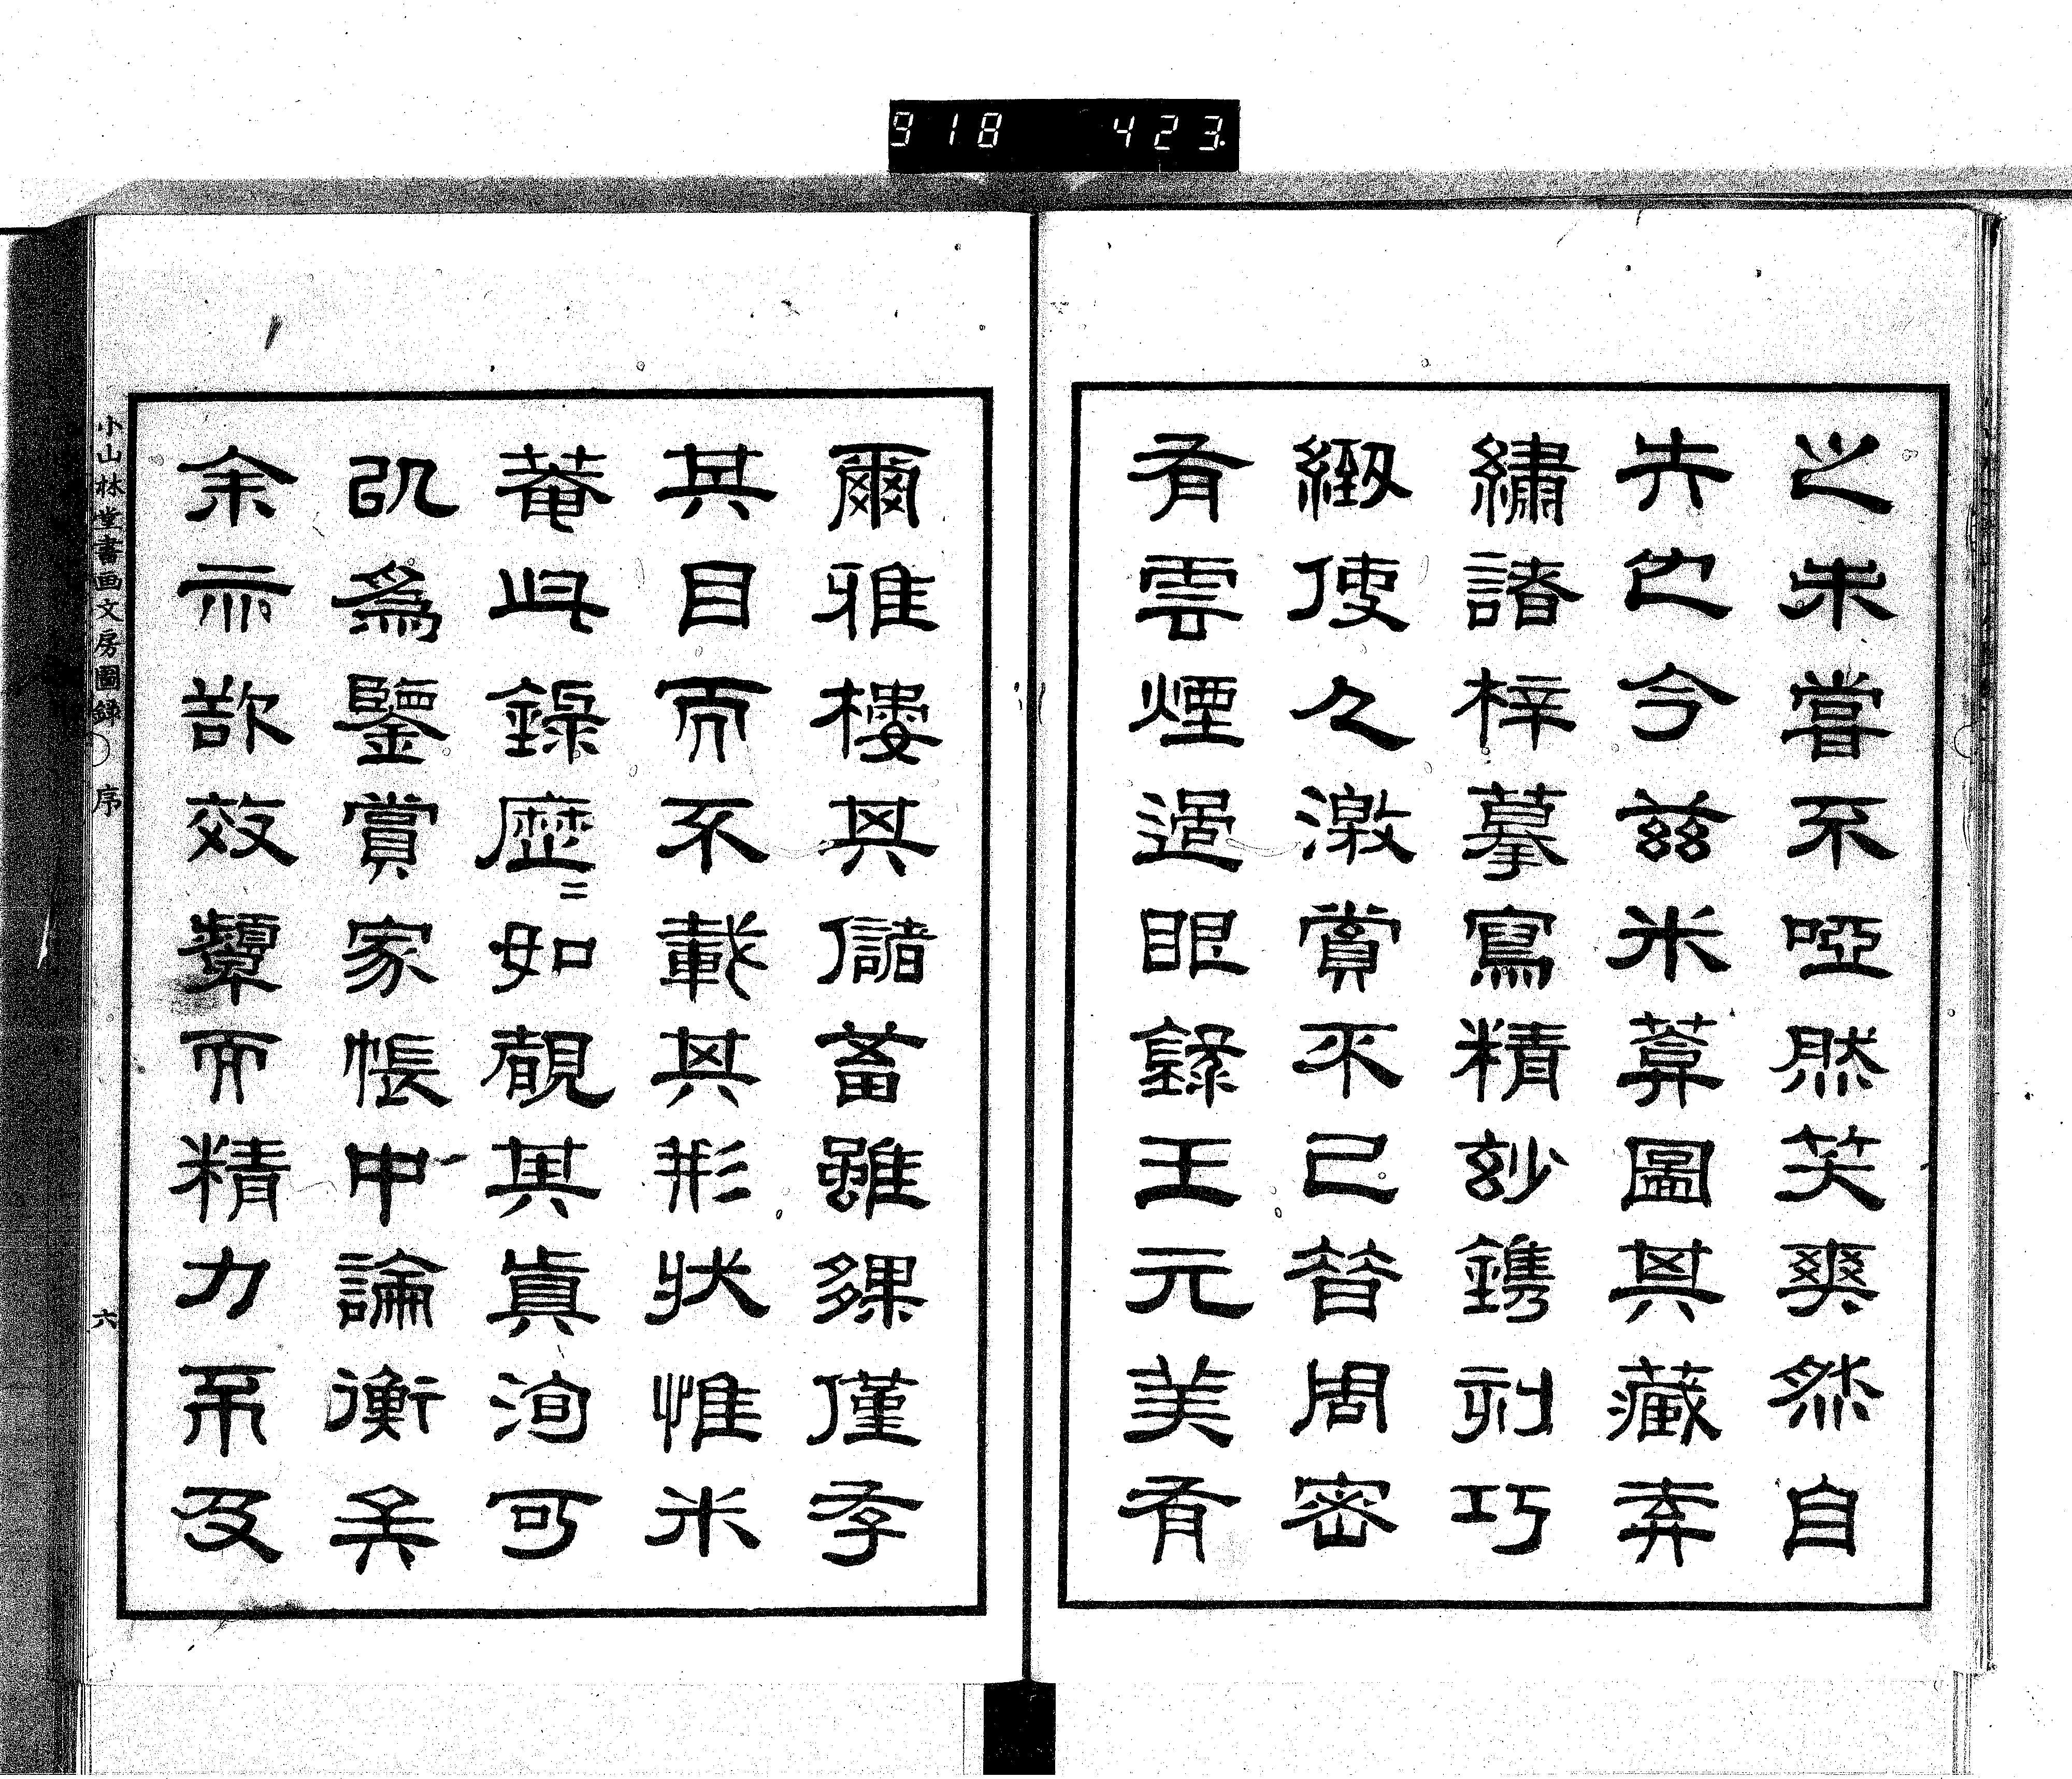 918 423.
之未嘗不啞然笑爽然自
失也今茲米葊圖其藏弆
繡諸梓摹寫精玅鐫刻巧
緻使人激賞不已昔周密
有雲煙過眼錄王元美有
爾雅樓其儲蓄雖夥僅存
其目而不載其形狀惟米
菴此錄歷〻如覩其眞洵可
以爲鑒賞家帳中論衡矣
余亦欲效顰而精力不及
小山林堂書画文房圖録 序 六